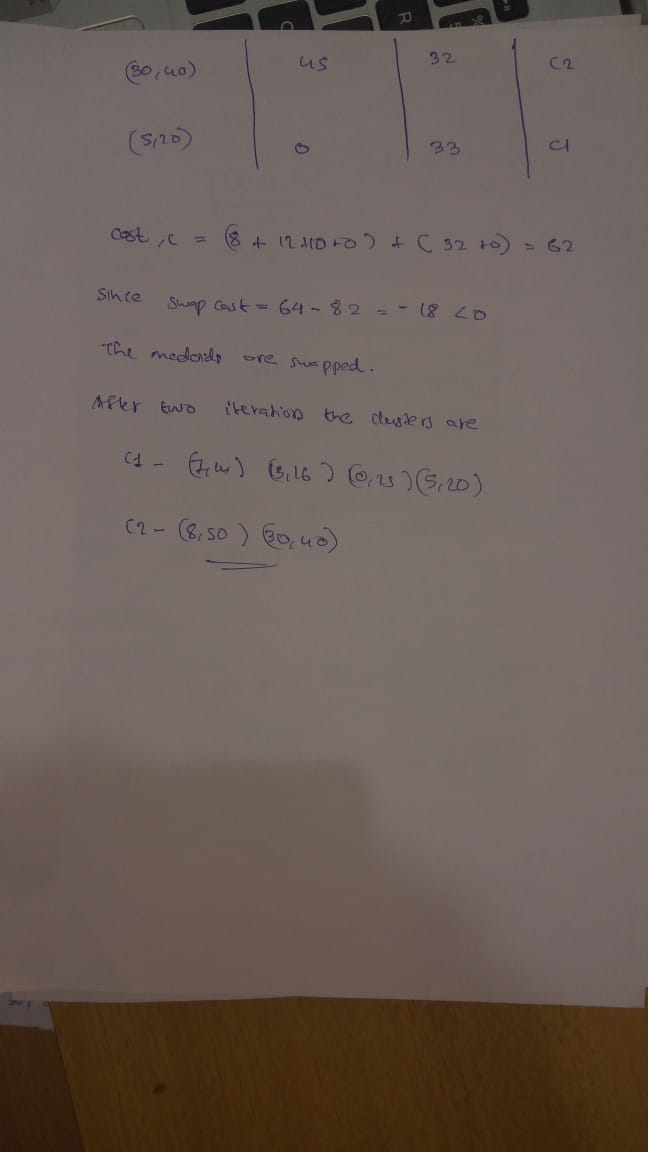 (30,40) 45 32 C2
(5,20) 0 33 C1
Cost, C = (8 + 12+10+0) + (32 +0) = 62
Since swap cost = 64 - 82 = -18 <0
The medoids are swapped.
After two iterations the clusters are
C1 - (7,14) (3,16) (0,25) (5,20)
C2 - (8,50) (30,40)
R
%
5